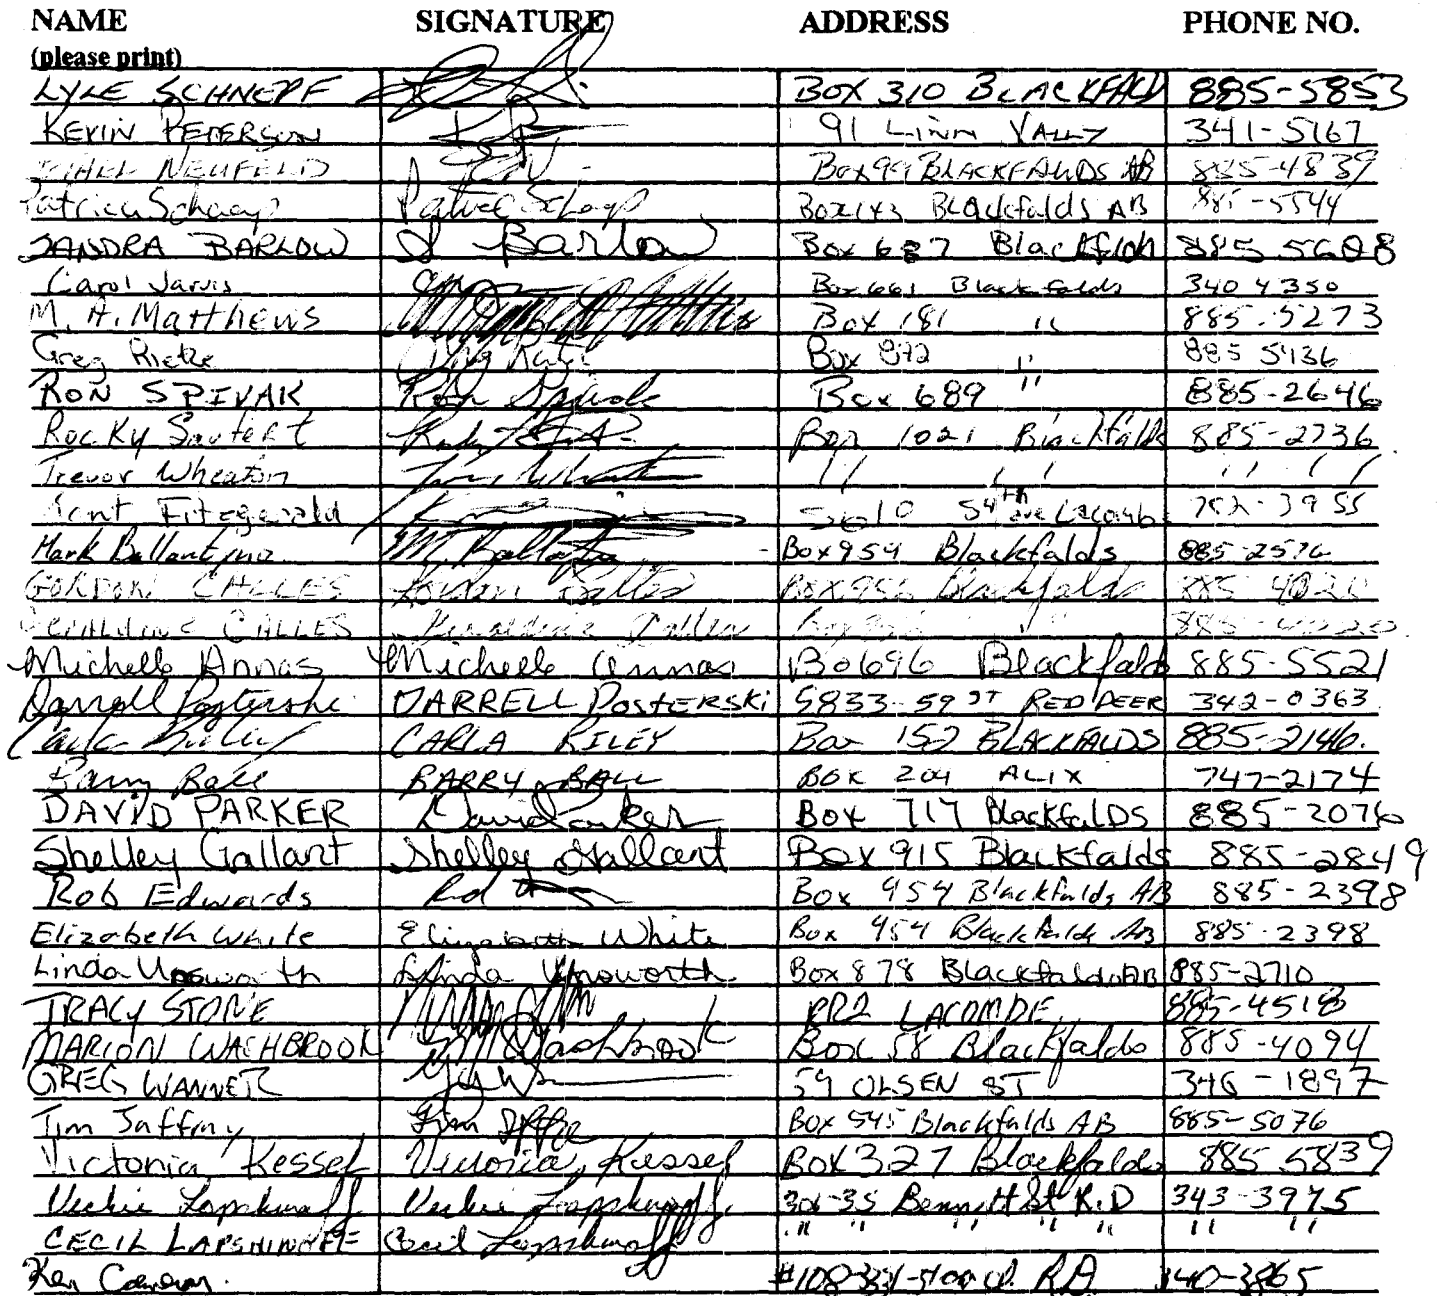 NAME SIGNATURE ADDRESS PHONE NO.
(please print)
LYLE SCHNEPF BOX 310 BLACKFALD 885-5853
KEVIN PETERSON 91 LINN VALLY 341-5167
NEUFELD Box 99 BLACKFALDS AB 885-4839
Patricia Schaap Box 143 Blackfalds AB 885-5544
SANDRA BARLOW S Barlow Box 687 Blackfalds 885 5608
Carol Jarvis Box 661 Blackfalds 340 4350
M. A. Matthews Box 181 " 885-5273
Greg Rietze Box 872 " 885 5136
RON SPIVAK Ron Spivak Box 689 " 885-2646
Rocky Sautert Box 1021 Blackfalds 885-2736
Trevor Wheaton " " " " " "
Fitzgerald 5610 54th ave Lacombe 782-3955
Mark Ballantyne M. Ballantyne Box 954 Blackfalds 885-2576
GORDON CALLES Gordon Calles Box 956 Blackfalds 885 4020
GERALDINE CALLES Geraldine Calles Box 956 " 885-4020
Michelle Annas Michelle Annas Bo 696 Blackfalds 885-5521
Darrell Posterski DARRELL POSTERSKI 5833-59 ST RED DEER 342-0363
Carla Kiley CARLA KILEY Box 152 BLACKFALDS 885-2146.
Barry Ball BARRY BALL BOX 204 ALIX 747-2174
DAVID PARKER David Parker Box 717 BlackfalDS 885-2076
Shelley Gallant Shelley Gallant Box 915 Blackfalds 885-2849
Rob Edwards Box 454 Blackfalds AB 885-2398
Elizabeth White Elizabeth White Box 454 Blackfalds AB 885-2398
Linda Unsworth Lynda Unsworth Box 878 Blackfalds AB 885-2710
TRACY STONE RR2 LACOMBE 885-4518
MARION WASHBROOK M Washbrook Box 58 Blackfalds 885-4094
GREG WANNER 59 OLSEN ST 346-1897
Tim Jaffray Box 545 Blackfalds AB 885-5076
Victoria Kessel Victoria Kessel Box 327 Blackfalds 885 5839
Vickie Lapshinoff Vickie Lapshinoff 306-35 Bennett St R.D 343-3975
CECIL LAPSHINOFF Cecil Lapshinoff " " " " " " "
Ken Cameron. R.D. 340-3865